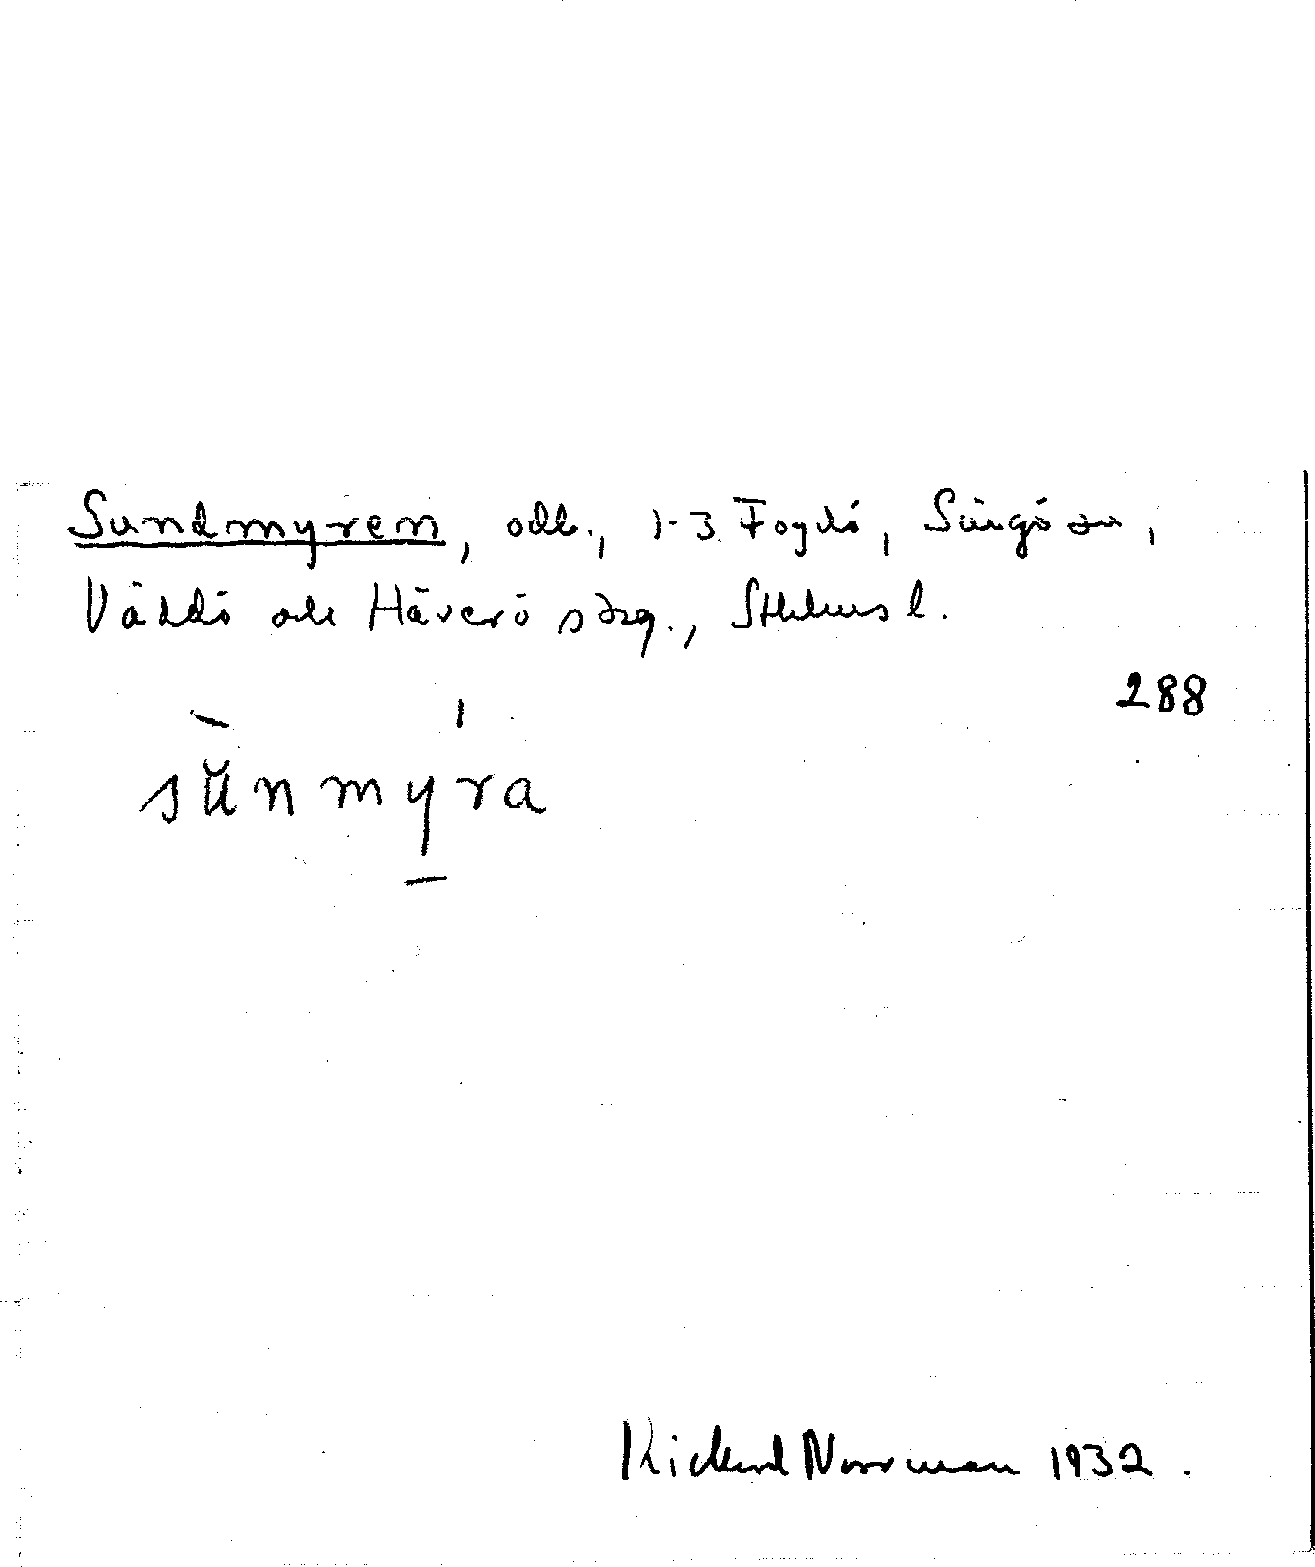 Sundmyren, odl., 1-3 Fogdö, Singö sn,
Väddö och Häverö skg., Sthlms l.
288
sŭ̀nmýra
Rickard Norrman 1932.